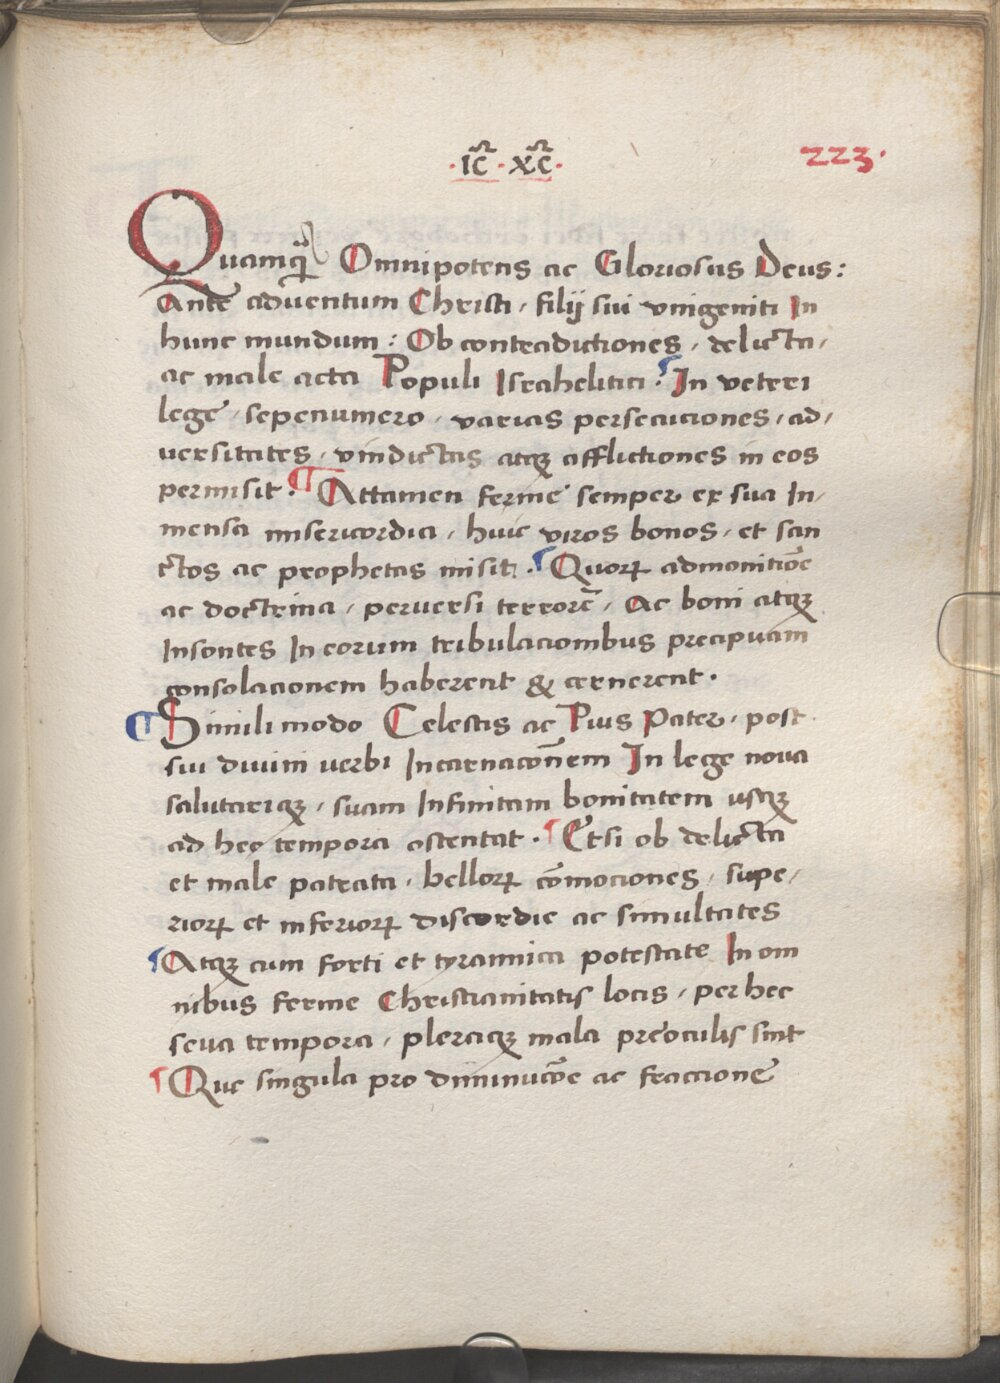 ·IC̅·XC̅· 223·
Quamq̃ Omnipotens ac Gloriosus Deus:
Ante adventum Christi, filij sui vnigeniti In
hunc mundum: Ob contradictiones, delicta,
ac male acta Populi Israhelitici: In veteri
lege, sepenumero, varias persecuciones, ad,
versitates, vindictas atqꝫ afflictiones in eos
permisit. ¶ Attamen ferme semper ex sua In,
mensa misericordia, huic viros bonos, et san
ctos ac prophetas misit. Quorꝝ admonitiōe
ac doctrina, perversi terrorē, Ac boni atqꝫ
Insontes In eorum tribulacionibus precipuam
consolacionem haberent & cernerent.
¶ Simili modo Celestis ac Pius Pater, post
sui divini verbi Incarnacōnem In lege nova
salutariqꝫ, suam Infinitam bonitatem usqꝫ
ad hec tempora ostentat. Etsi ob delicta
et male patrata, bellorꝝ cōmociones, supe,
riorꝝ et inferiorꝝ discordie ac simultates
Atqꝫ cum forti et tyrannica potestate In om
nibus ferme Christianitatis locis, per hec
seva tempora, pleraqꝫ mala preoculis sint
Que singula pro diminucōe ac fraccione